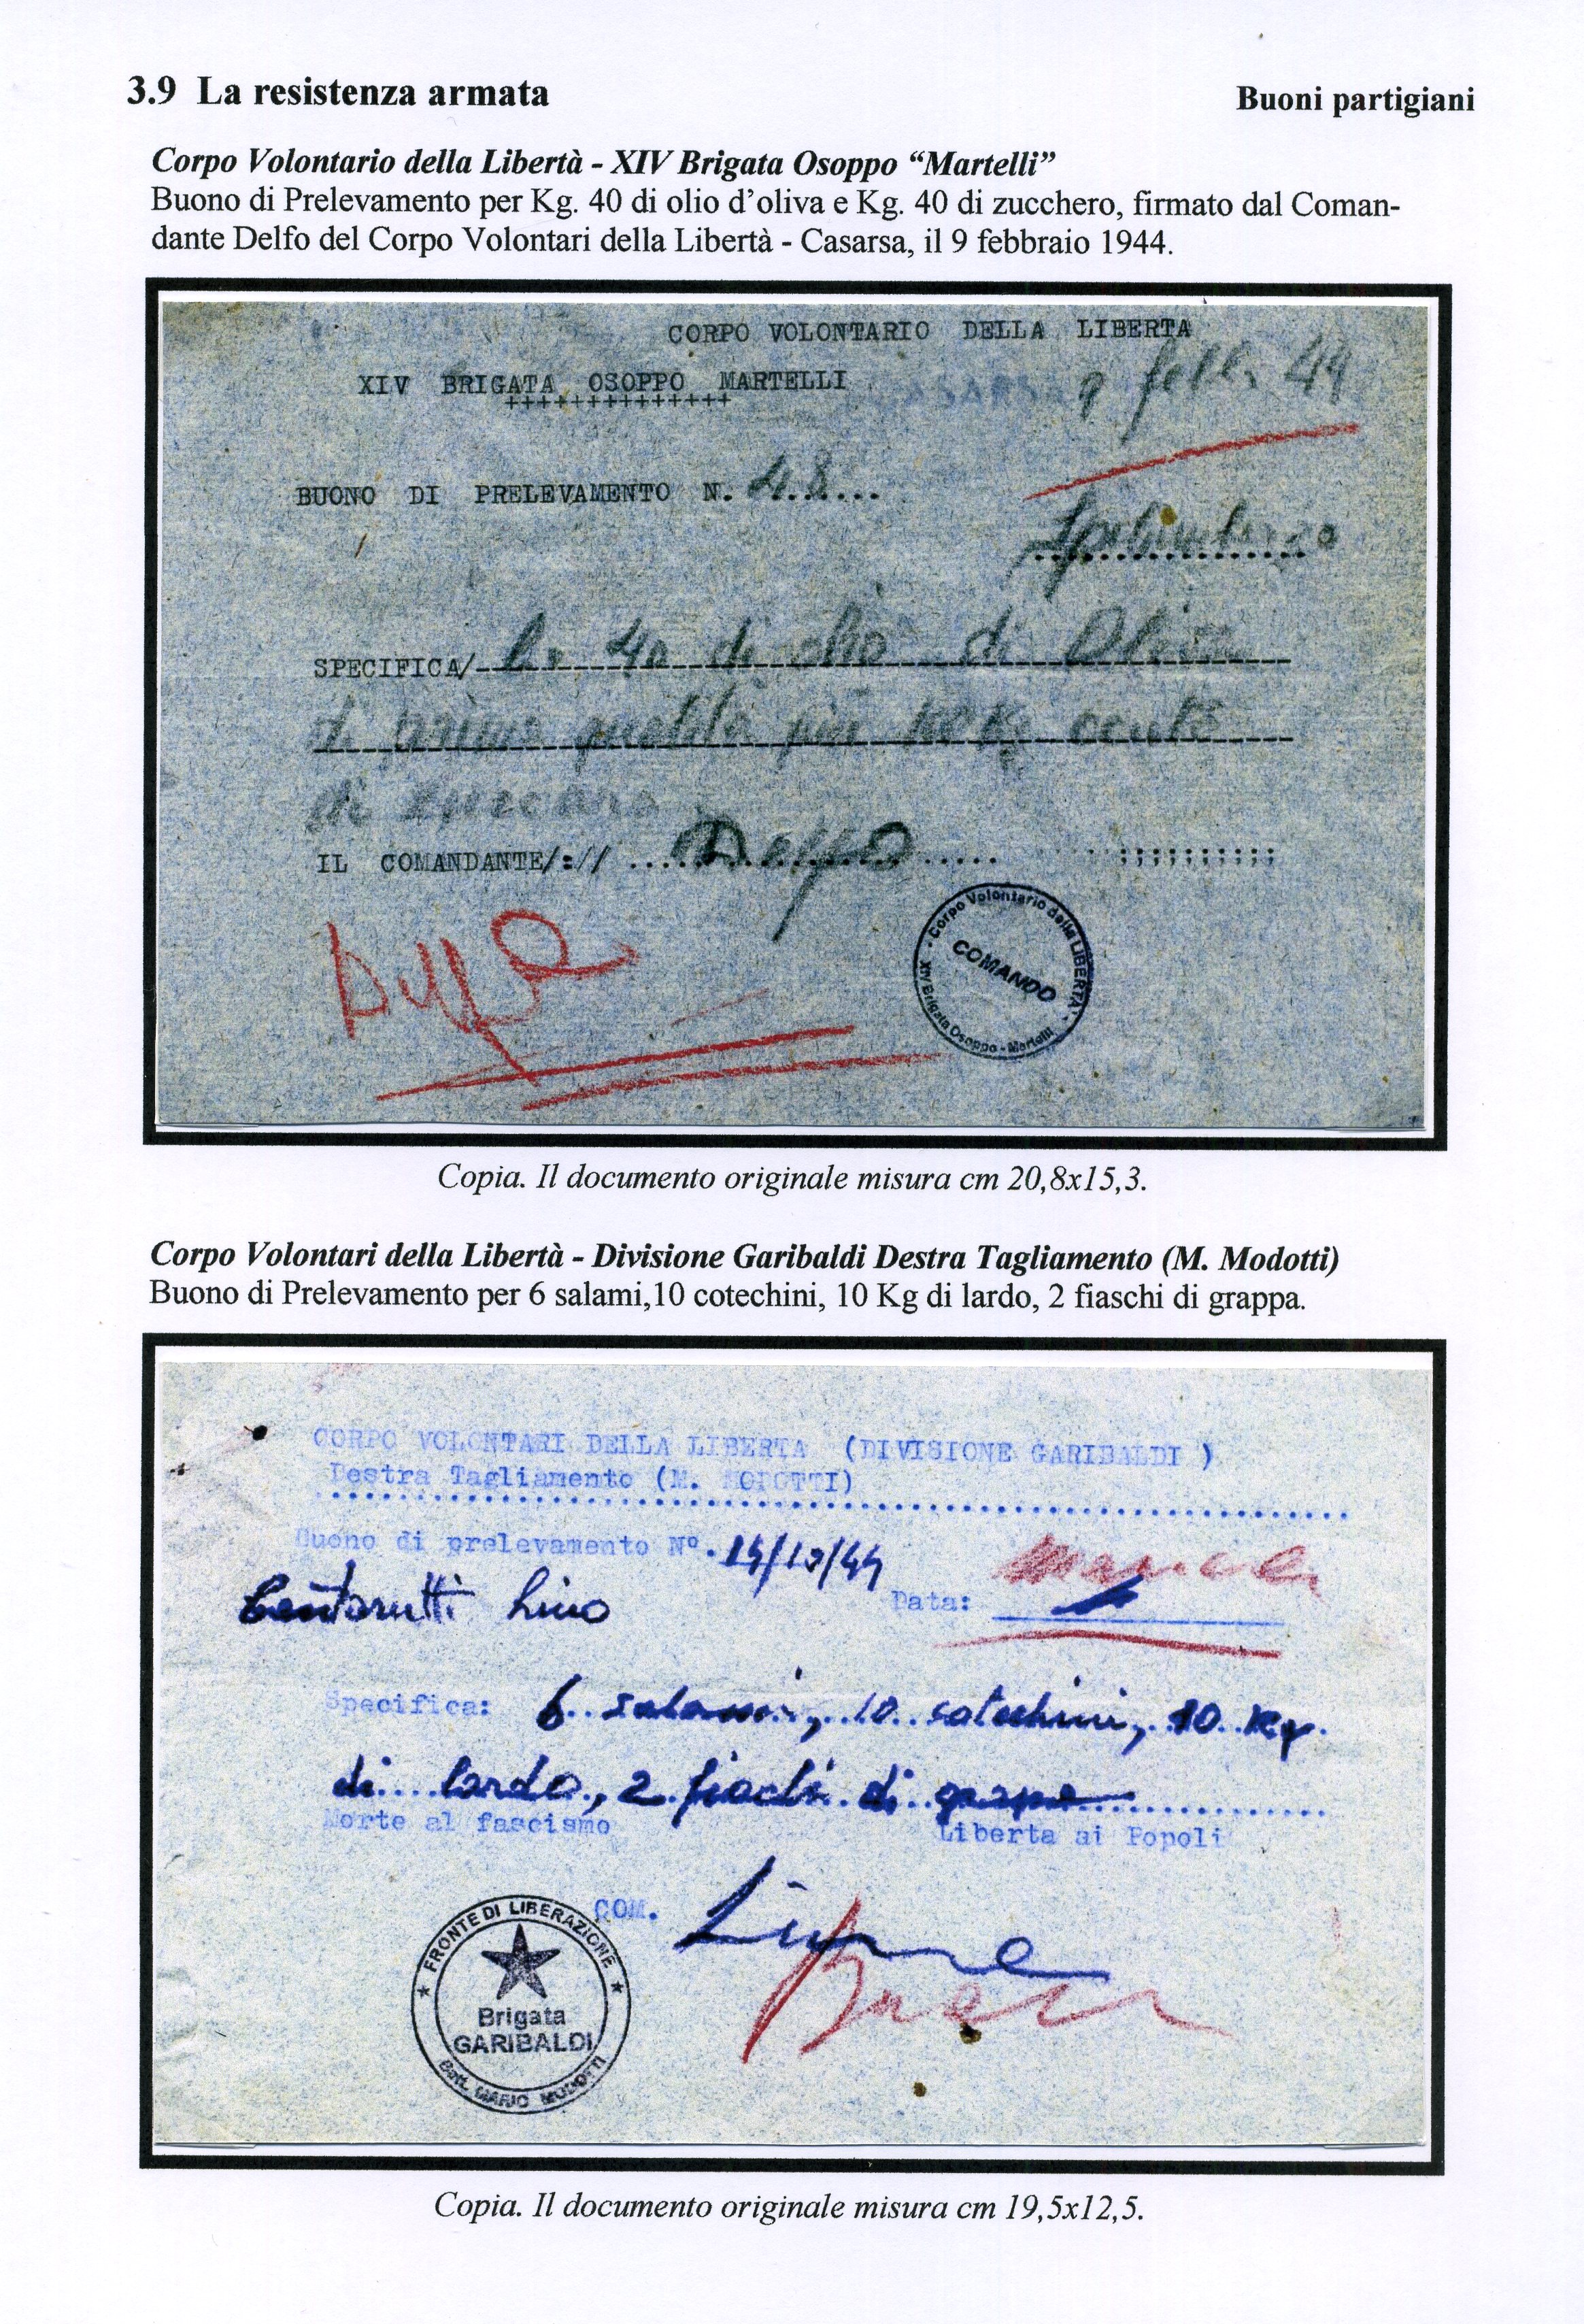 3.9 La resistenza armata
Buoni partigiani
Corpo Volontario della Libertà - XIV Brigata Osoppo “Martelli”
Buono di Prelevamento per Kg. 40 di olio d’oliva e Kg. 40 di zucchero, firmato dal Coman-
dante Delfo del Corpo Volontari della Libertà - Casarsa, il 9 febbraio 1944.
CORPO VOLONTARIO DELLA LIBERTA
XIV BRIGATA OSOPPO MARTELLI
+++++++++++++++
CASARSA 9 febb. 44
BUONO DI PRELEVAMENTO N. 48...
SPECIFICA/ 40 di olio di Oliva
di prima qualità più
di zuccaro
IL COMANDANTE/:// ....Delfo.....
;;;;;;;;;;
Corpo Volontario della LIBERTA'
COMANDO
XIV Brigata Osoppo - Martelli
Copia. Il documento originale misura cm 20,8x15,3.
Corpo Volontari della Libertà - Divisione Garibaldi Destra Tagliamento (M. Modotti)
Buono di Prelevamento per 6 salami,10 cotechini, 10 Kg di lardo, 2 fiaschi di grappa.
CORPO VOLONTARI DELLA LIBERTA (DIVISIONE GARIBALDI )
Destra Tagliamento (M. MODOTTI)
Buono di prelevamento Nº. 14/12/44
Lino
Data:
Specifica: 6 salami, 10 cotechini, 10 Kg.
di lardo, 2 fiachi di grapa
Morte al fascismo
Liberta ai Popoli
COM.
FRONTE DI LIBERAZIONE
Brigata
GARIBALDI
Batt. MARIO MODOTTI
Copia. Il documento originale misura cm 19,5x12,5.